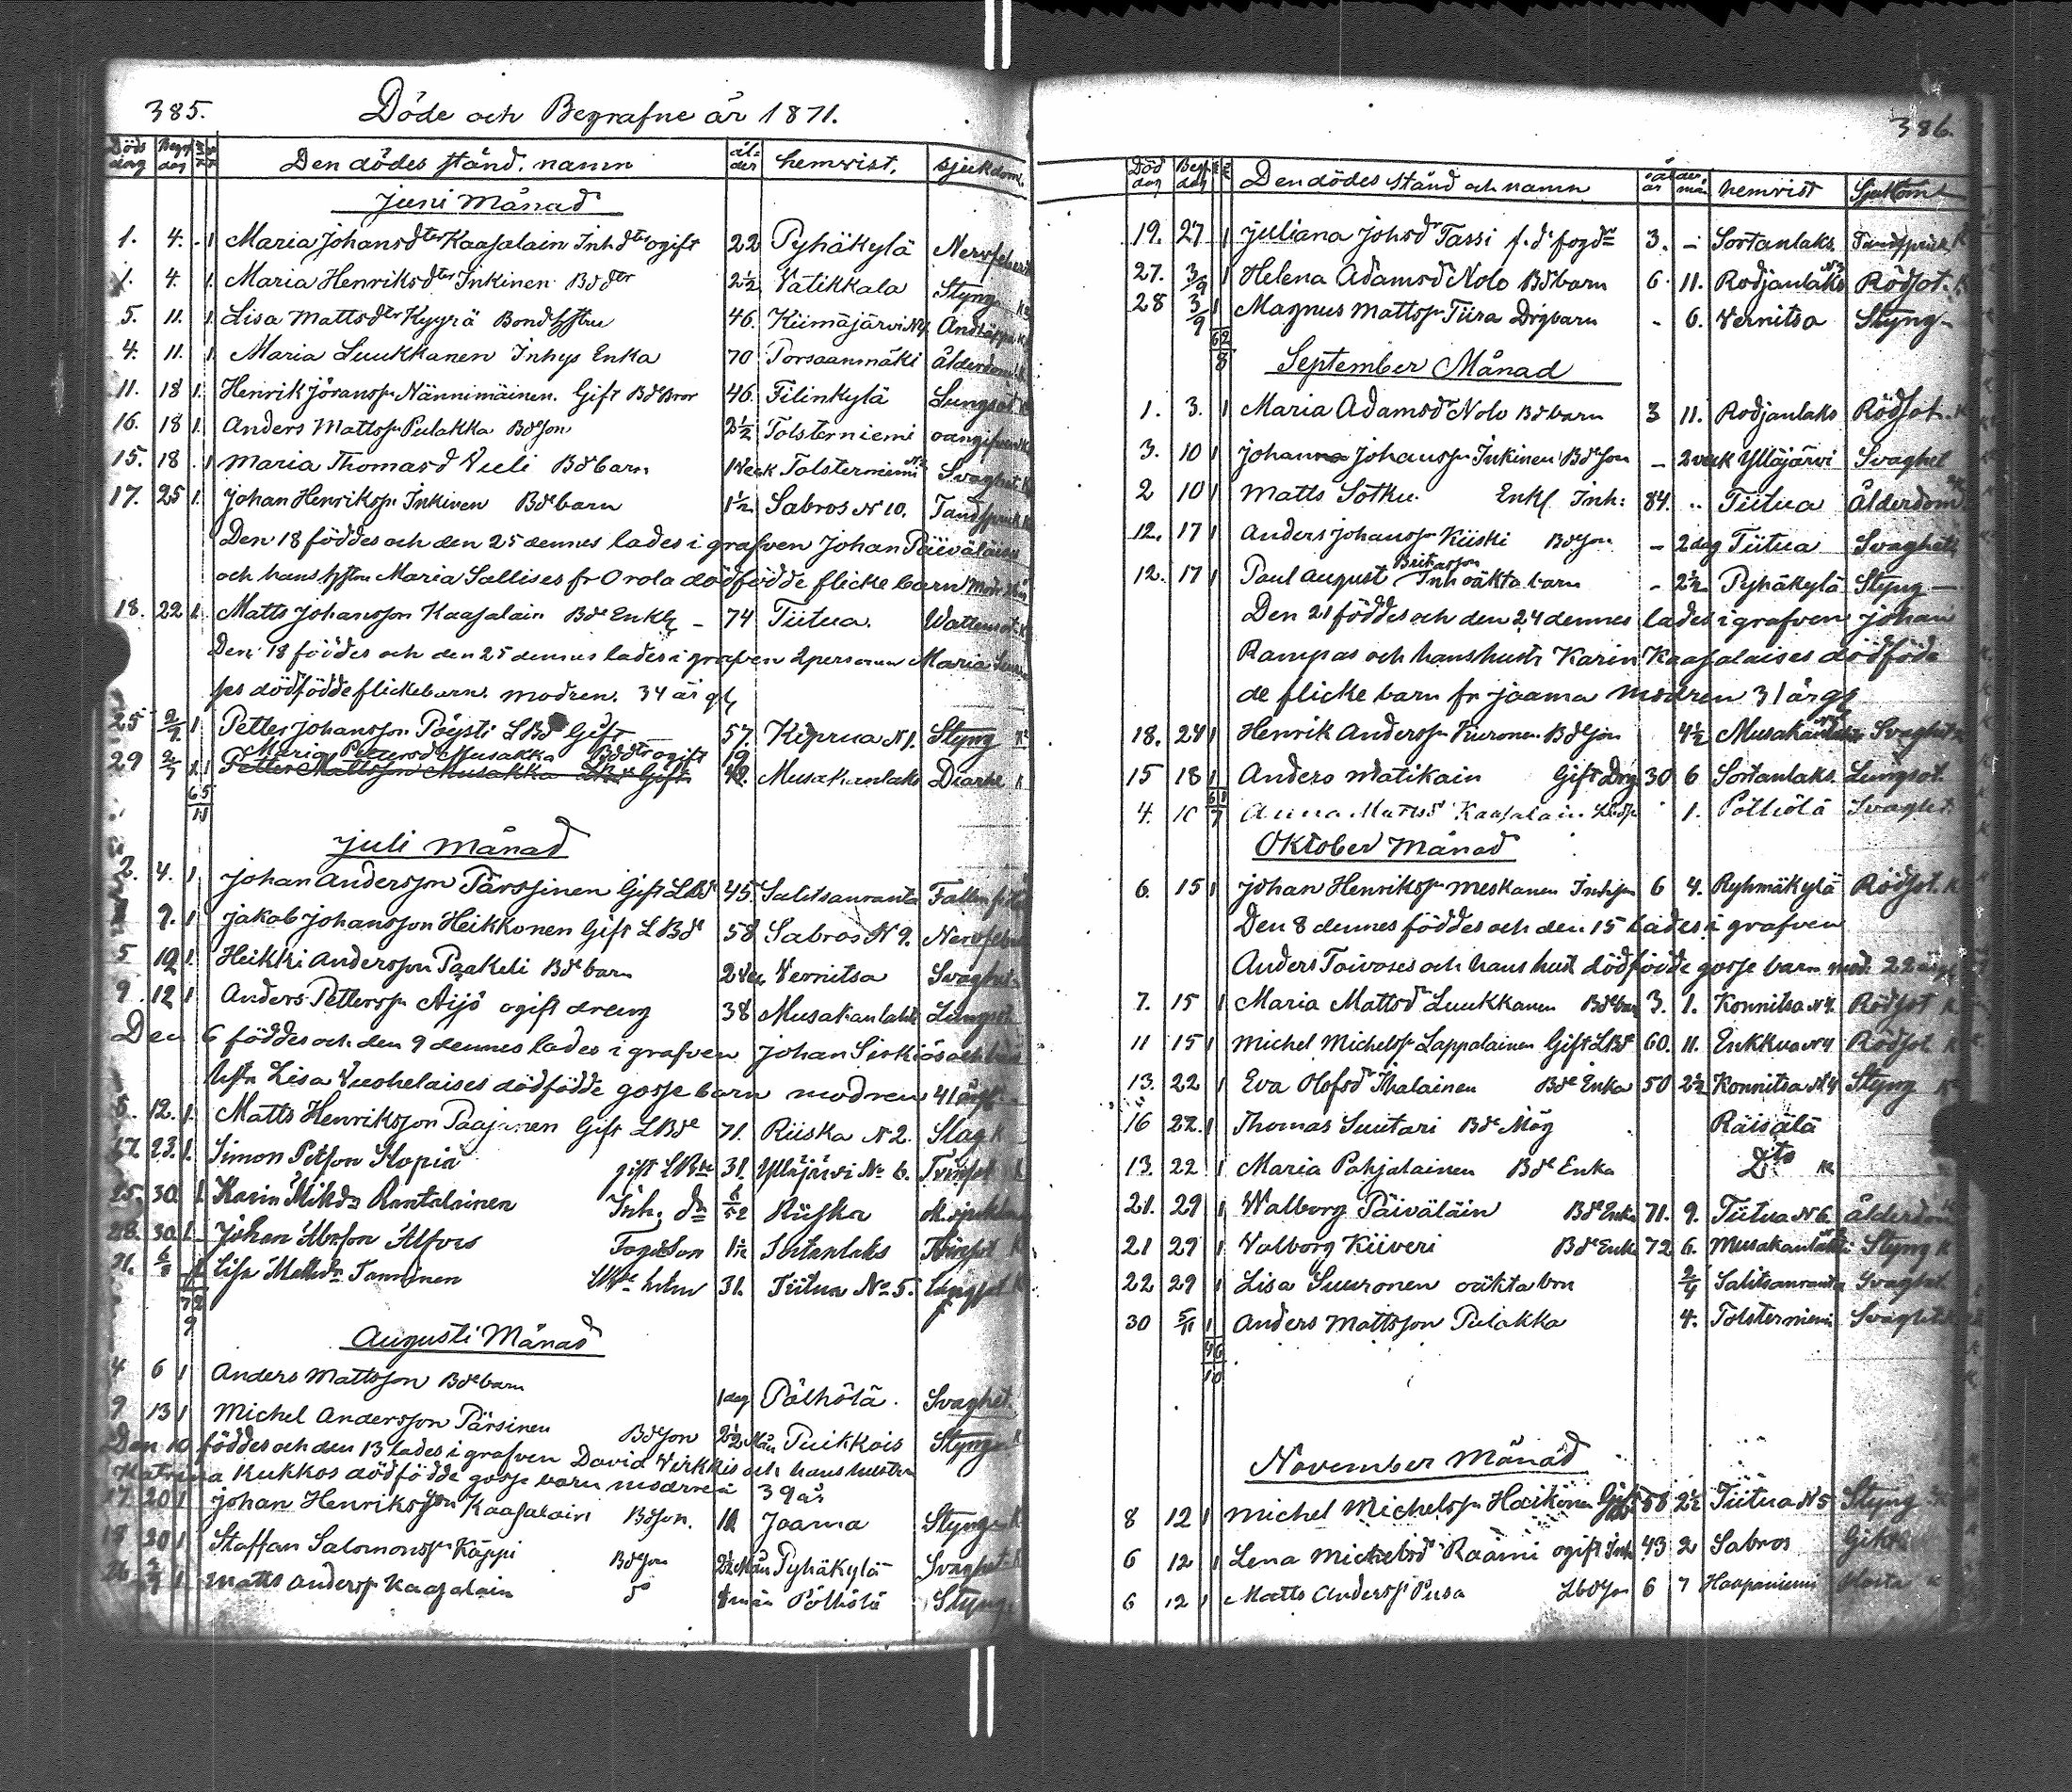 385. Döde och Begrafne år 1871.
Döds dag Begr dag Den dödes stånd. namn ål- der hemvist. sjukdom.
Juni Månad
1. 4. 1 Maria Johansdter Kaasalain Inh dtr ogift 22 Pyhäkylä Nervfeber
1. 4. 1. Maria Henriksdter Inkinen Bdedtr 2½ Vatikkala Styng
5. 11. 1. Lisa Mattsdter Kyyrä Bond hstru 46. Kiimäjärvi N4.
4. 11. 1. Maria Luukkanen Inhys Enka 70 Porsaanmäki ålderdom
11. 18 1. Henrik Jöranss. Nännimäinen. Gift Bde Bror 46. Filinkylä Lungsot
16. 18 1. Anders Mattss. Pulakka Bdeson 2½ Tolsterniemi oangifven
15. 18 1 Maria Thomasd Vuli Bdebarn 1 Veck Tolsterniemi Svaghet
17. 25 1. Johan Henrikss. Inkinen Bdebarn 1½ Sabros N 10. Tandspruk
Den 18 föddes och den 25 dennes lades i grafven Johan Päiväläises
och hans hstru Maria Sallises fr Orola dödfödde flicke barn
18. 22 1. Matts Johansson Kaasalain Bde Enkl – 74 Tiitua. Wattensot
Den 18 föddes och den 25 dennes lades i grafven 2 personer Maria
ses dödfödde flickebarn. modren. 34 år gl
25 2/7 1. Petter Johansson Pöysti LBde Gift 57. Kiprua N 1. Styng
Maria Pettersd Musakka Bddtr ogift 19
29 2/7 1 Petter Mattsson Musakka LBde Gift Musakanlaks Diarhe
6 5
11
Juli Månad
2. 4. 1. Johan Andersson Pärssinen Gift LBde 45. Salitsanranta
9. 1 Jakob Johansson Heikkonen Gift LBde 58 Sabros N 9. Nervfeber
5 1. Heikki Andersson Paakeli Bdebarn 2 Vec Vernitsa Svaghet
9. 12 1 Anders Petterss. Äijö ogift dreng 38 Musakanlahti Lungsot
Den 6 föddes och den 9 dennes lades i grafven Johan Siskiös och hans
hstr Lisa Vuohelaises dödfödde gosse barn modren 41 år gl
5. 12. 1. Matts Henriksson Paajanen Gift LBde 71. Riiska N 2. Slag
17. 23. 1. Simon Petson Skopia gift LBde 31. Ylläjärvi No 6.
25. 30. 1. Karin Mikds Rantalainen Inh. dr 6/52 Riiska ok. sjukdom
28. 30. 1. Johan Abrson Alfors Torpson Sortanlaks
31. 6/8 1 Lisa Mattsdr Tanninen LBde hstru 31. Tiitua No 5. Lungsot
7 2
9
Augusti Månad
4 6 1 Anders Mattsson Bdebarn 1 dag Pölhölä. Svaghet.
9 13 1 Michel Andersson Pärsinen Bdson 2½ Mån Puikkois Styng
Den 10 föddes och den 13 lades i grafven David Virkkis och hans hustru
Katrina Kukkos dödfödde gosse barn modren 39 år
17. 20 1 Johan Henriksson Kaasalain Bdson. Jaama Styng
18 20 1 Staffan Salomonss. Käppi Bdeson 2½ Mån Pyhäkylä Svaghet
26 1 Matts Anderss. Kaasalain mån Pölhölä Styng
386.
Död dag Begr. dag Den dödes stånd och namn år mån hemvist Sjukdom
19. 27 1 Juliana Johsdr Tassi f.d. fogdr 3. – Sortanlaks Tandspruk
27. 3/9 1 Helena Adamsdr Nolo Bdebarn 6. 11. Rodjanlaks Rödsot.
28 3/9 1 Magnus Mattss. Tiira Drgbarn - 6. Vernitsa Styng
6 2
8
September Månad
1. 3. 1 Maria Adamsdr Nolo Bdebarn 3 11. Rodjanlaks Rödsot
3. 10 1 Johan Johanss. Inkinen Bdeson – 2 veck Ylläjärvi Svaghet
2 10 1 Matts Sotku. Enkl Inh: 84. .. Tiitua Ålderdom
12. 17 1 Anders Johanss. Kiiski Bdeson – 2 dag Tiitua Svaghet
Britasson
12. 17 1 Paul August Inh oäkta barn - 2½ Pyhäkylä Styng
Den 21 föddes och den 24 dennes lades i grafven Johan
Rampas och hans hustr Karin Kaasalaises dödföd-
de flicke barn fr Jaama modren 31 år gl
18. 24 1 Henrik Anderss. Kuronen Bdeson 4½ Svaghet
15 18 1 Anders Matikain Gift Drg 30 6 Sortanlaks. Lungsot.
4. 10 Anna Mattsd Kaasalain 1. Pölhölä Svaghet
6 1
7
Oktober Månad
6. 15 1 Johan Henrikss. Meskanen 6 4. Ryhmäkylä Rödsot.
Den 8 dennes föddes och den 15 lades i grafven
Anders Toivoses och hans hust dödfödde gosse barn mod. 22 år
7. 15 1 Maria Mattsdr Luukkanen Bdebar 3. 1. Konnitsa N 4. Rödsot
11 15 1 Michel Michelss. Lappalainen Gift LBde 60. 11. Enkkua N 4 Rödsot
13. 22 1 Eva Olofsdr Ihalainen Bde Enka 50 2½ Konnitsa N 4 Styng
16 22. 1 Thomas Suutari Bde Måg Räisälä
13. 22 1 Maria Pohjalainen Bde Enka Dto
21. 29 1 Walborg Päiväläin Bde Enka 71. 9. Tiitua N 6. ålderdom
21 29 1 Valborg Kiiveri Bde Enk 72 6. Musakanlahti Styng
22 29 1 Lisa Suuronen oäkta brn 2/4 Salitsanranta Svaghet
30 5/11 1 Anders Mattsson Pulakka 4. Tolsterniemi Svaghet
4 6
10
November Månad
8 12 1 Michel Michelss. Haikonen Gift 58 2½ Tiitua N 5 Styng
6 12 1 Lena Michelsdr Raami ogift Inh 43 2 Sabros Gikt
6 12 1 Matts Anderss. Pusa Lbdson 6 7 Haapaniemi Hosta